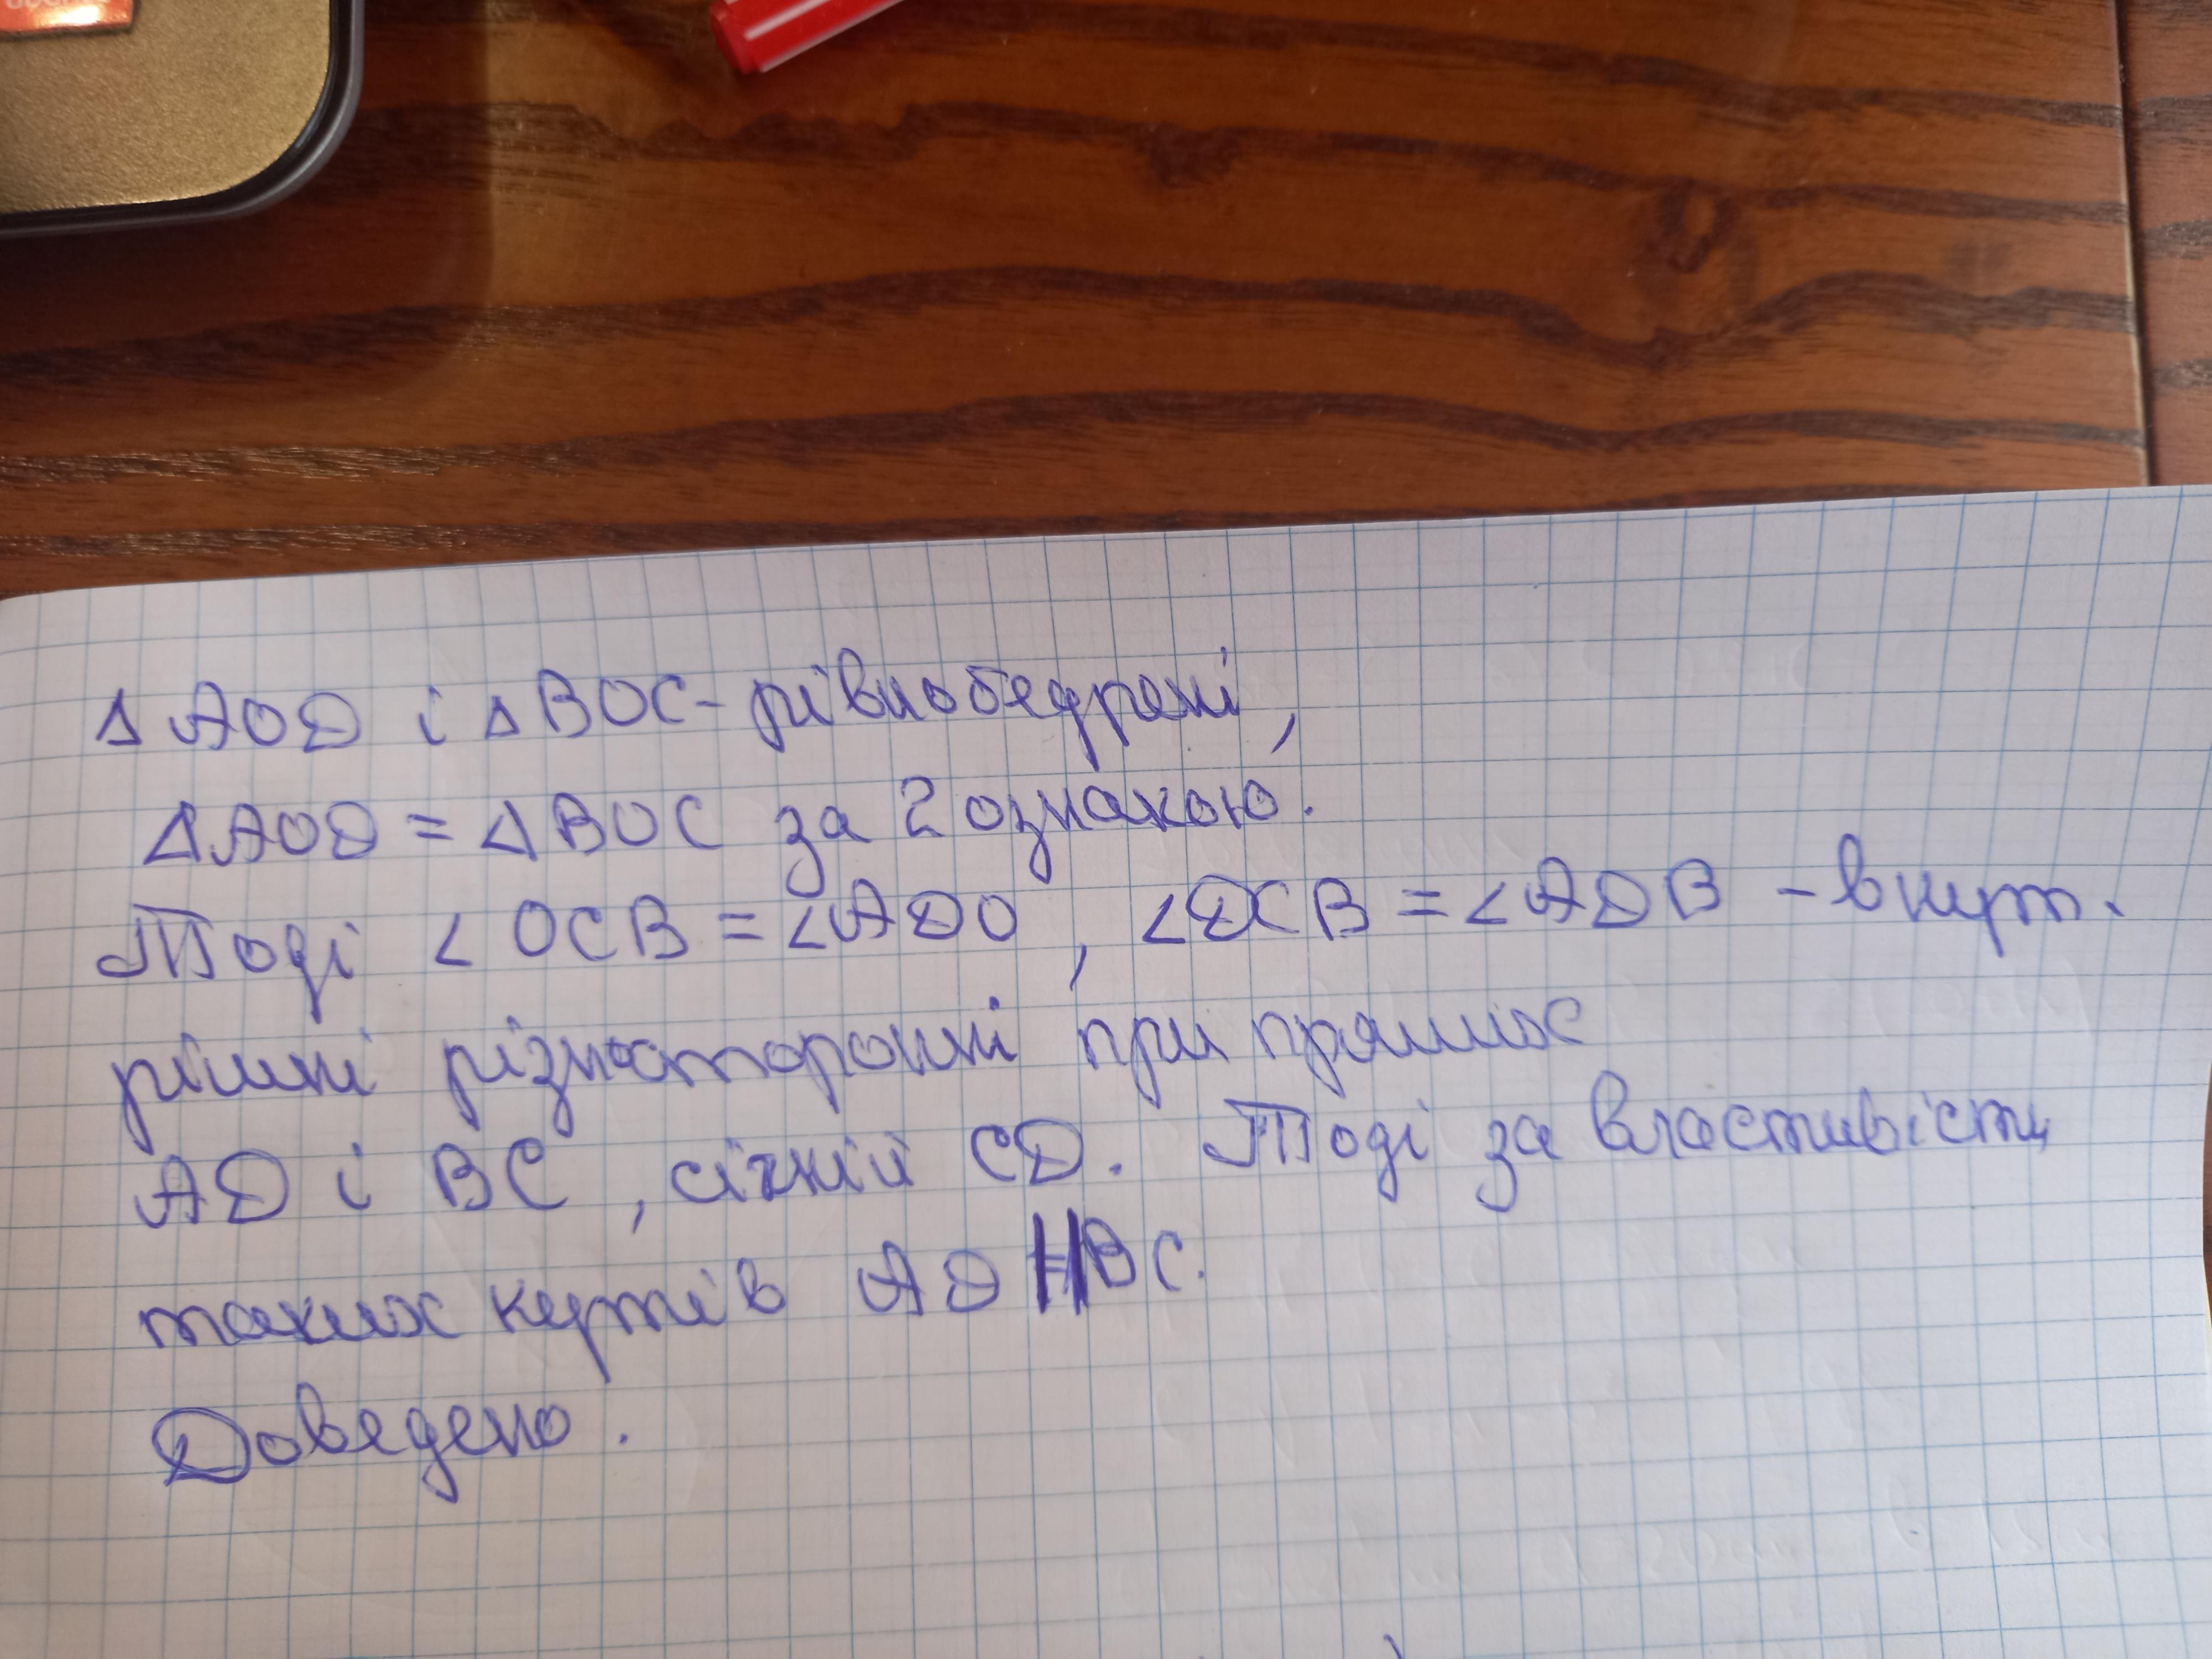 Δ AOD і Δ BOC - рівнобедрені,
Δ AOD = Δ BOC за 2 ознакою.
Тоді ∠ OCB = ∠ ADO, ∠ DCB = ∠ ADB - внут.
рішні різносторонні при прямих
AD і BC, січній CD. Тоді за властивістю
таких кутів AD || BC.
Доведено.